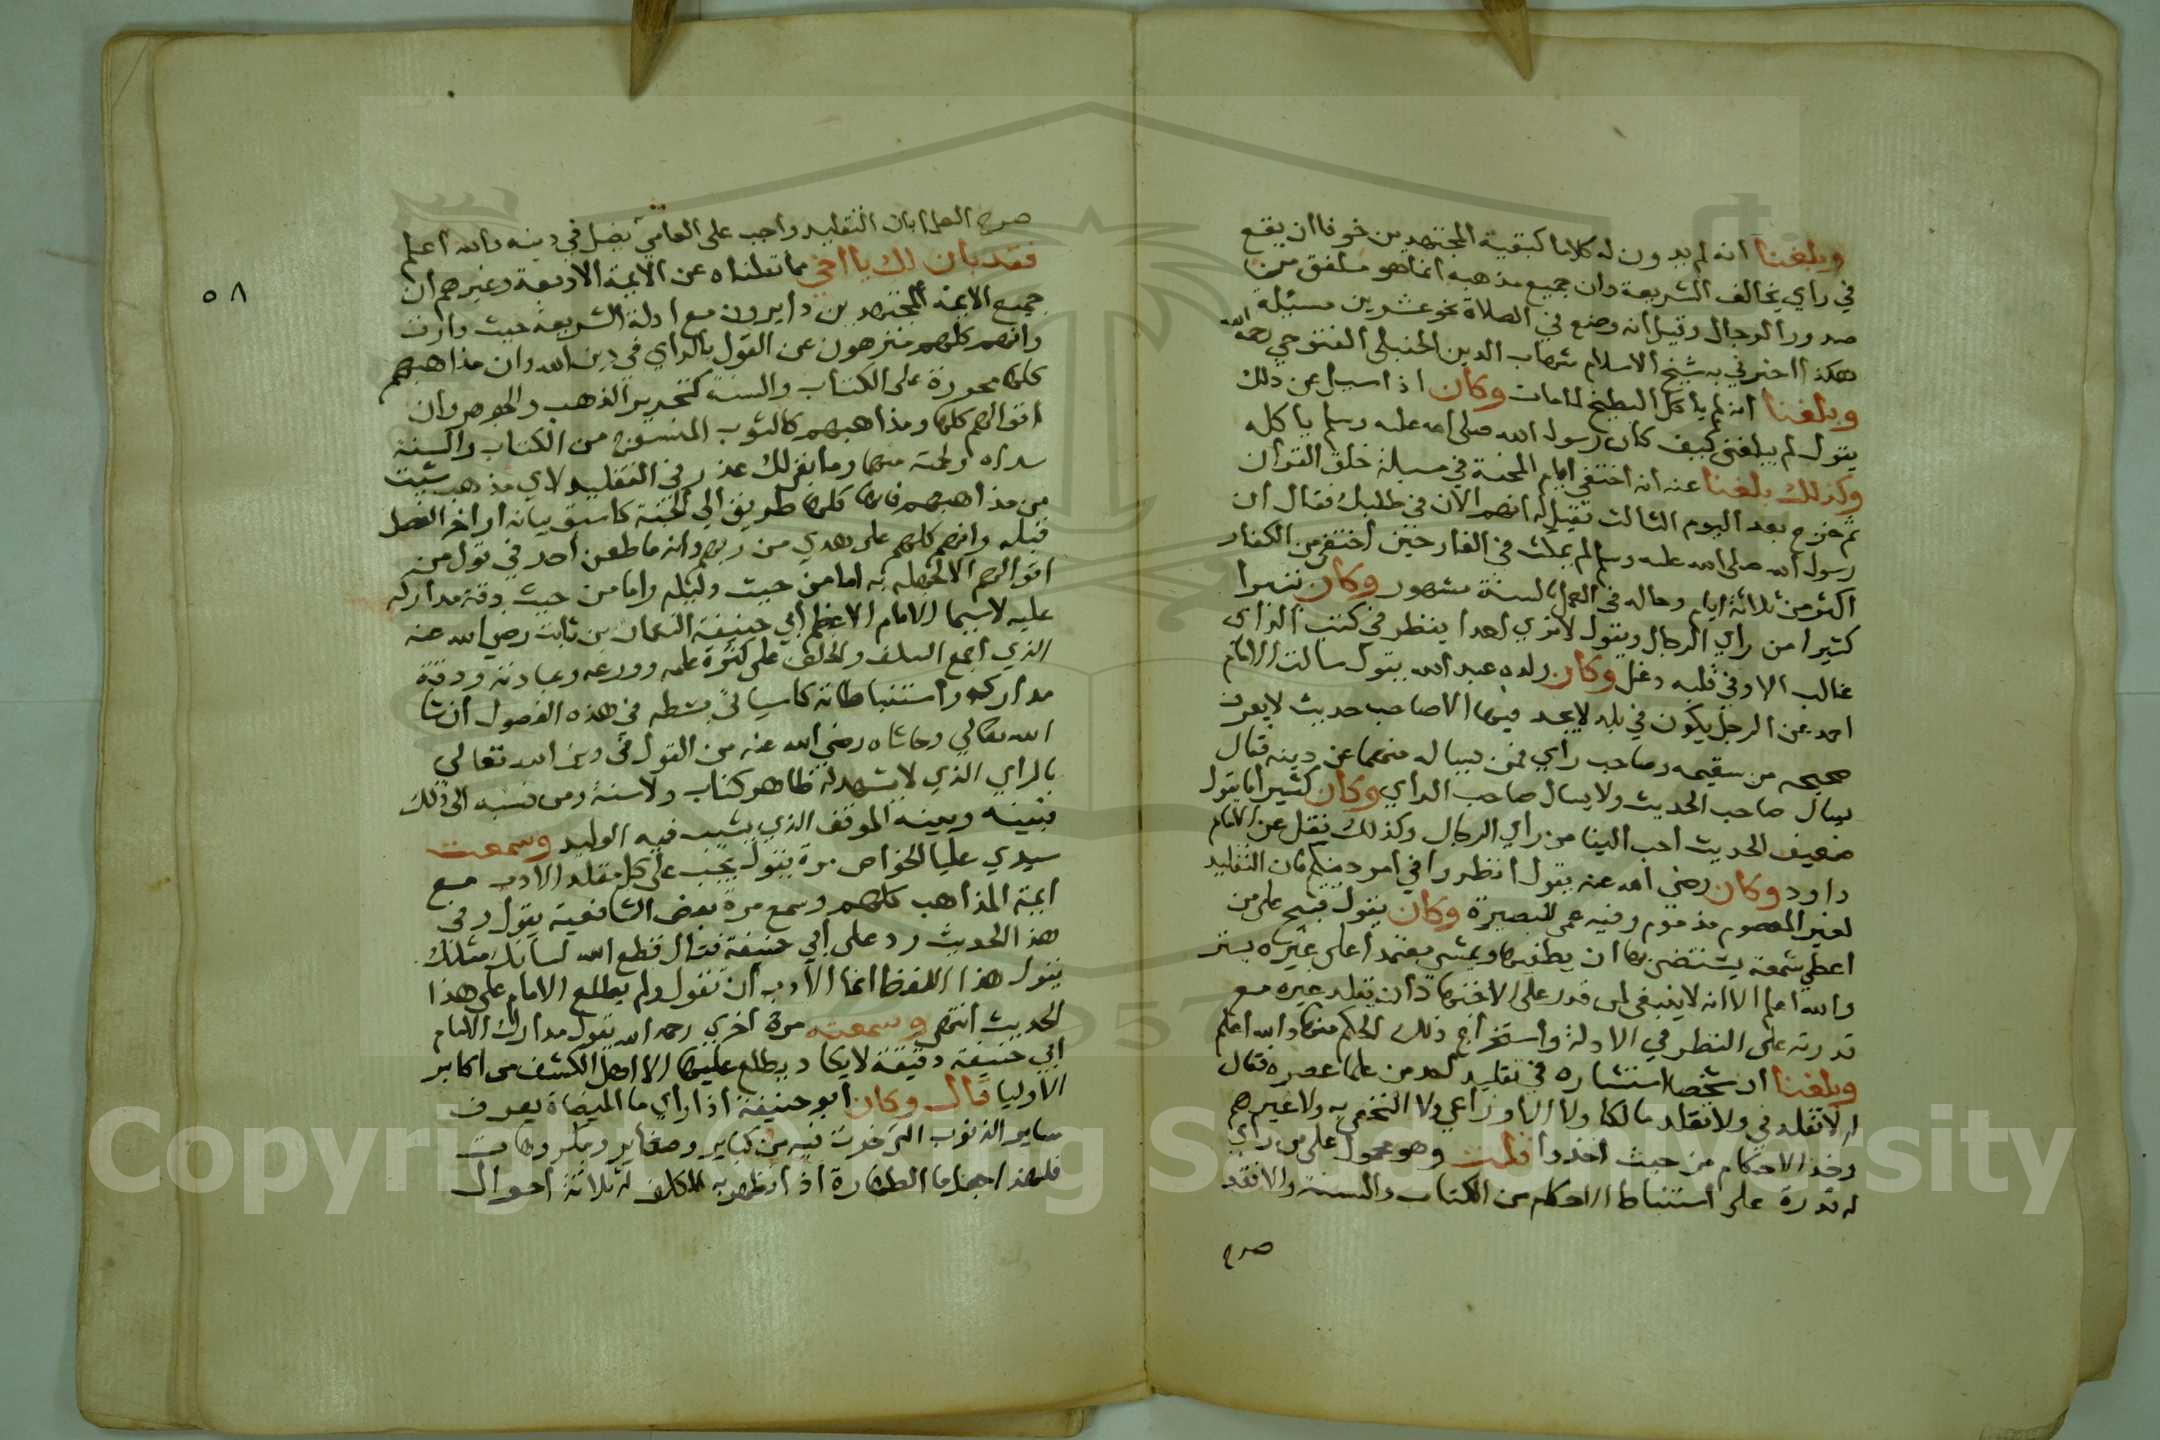 وبلغنا انه لم يدون له كلاما كبقية المجتهدين خوفا ان يقع
في راي يخالف الشريعة وان جميع مذهبه انما هو ملفق من
صدور الرجال وقيل انه وضع في الصلاة نحو عشرين مسئلة
هكذا اخبرني به شيخ الاسلام شهاب الدين الحنبلي الفتوحي رحمه الله
وبلغنا انه لم ياكل البطيخ لمامات وكان اذا سيل عن ذلك
يقول لم يبلغني كيف كان رسول الله صلى الله عليه وسلم ياكله
وكذلك بلغنا عنه انه اختفي ايام المحنة في مسيلة خلق القران
ثم خرج بعد اليوم الثالث فقيل له انهم الان في طلبك فقال ان
رسول الله صلى الله عليه وسلم لم يمكث في الغار حين اختفى من الكفار
اكثر من ثلاثة ايام وحاله في العمل بالسنة مشهور وكان يتبرا
كثيرا من راي الرجال ويقول لا تري احدا ينظر في كتب الراي
غالبا الا وفي قلبه دغل وكان ولده عبد الله يقول سالت الامام
احمد عن الرجل يكون في بلد لا يجد فيها الا صاحب حديث لا يعرف
صحيحه من سقيمه وصاحب راي فمن يسال منهما عن دينه فقال
يسال صاحب الحديث ولا يسال صاحب الراي وكان كثيرا ما يقول
ضعيف الحديث احب الينا من راي الرجال وكذلك نقل عن الامام
داود وكان رضي الله عنه يقول انظروا في امر دينكم فان التقليد
لغير المعصوم مذموم وفيه عمى للبصيرة وكان يقول قبيح على من
اعطي شمعة يستضي بها ان يطفيها ويمشي معتمدا على غيره يستر
والله اعلم الا انه لا ينبغي لمن قدر على الاجتهاد ان يقلد غيره مع
قدرته على النظر في الادلة واستخراج ذلك الحكم منها والله اعلم
وبلغنا ان شخصا استشاره في تقليد احد من علما عصره فقال
له لا تقلدني ولا تقلد مالكا ولا الاوزاعي ولا النخعي ولا غيرهم
وخذ الاحكام من حيث اخذوا قلت وهو محمول على من راي
له قدرة على استنباط الاحكام من الكتاب والسنة والا فقد
صرح
٥٨
صرح العلما بان التقليد واجب على العامي لئلا يضل في دينه والله اعلم
فقد بان لك يا اخي مما نقلناه عن الايمة الاربعة وغيرهم ان
جميع الايمة المجتهدين دايرون مع ادلة الشريعة حيث دارت
وانهم كلهم منزهون عن القول بالراي في دين الله وان مذاهبهم
كلها محررة على الكتاب والسنة كتحرير الذهب والجوهر وان
اقوالهم كلها ومذاهبهم كالثوب المنسوج من الكتاب والسنة
سداه ولحمته منهما وما بقي لك عذر في التقليد لاي مذهب شيت
من مذاهبهم فانها كلها طريق الي الجنة كما سبق بيانه اواخر الفصل
قبله وانهم كلهم على هدي من ربهم وانه ما طعن احد في قول من
اقوالهم الا لجهله به اما من حيث دليله واما من حيث دقة مداركه
عليه لاسيما الامام الاعظم ابي حنيفة النعمان بن ثابت رضي الله عنه
الذي اجمع السلف والخلف على كثرة علمه وورعه وعبادته ودقة
مداركه واستنباطاته كما سياتي بسطه في هذه الفصول ان شا
الله تعالي وحاشاه رضي الله عنه من القول في دين الله تعالي
بالراي الذي لا يشهد له ظاهر كتاب ولا سنة ومن نسبه الى ذلك
فبينه وبينه الموقف الذي يشيب فيه الوليد وسمعت
سيدي عليا الخواص مرة يقول يجب على كل مقلد الادب مع
ايمة المذاهب كلهم وسمع مرة بعض الشافعية يقول وفي
هذا الحديث رد على ابي حنيفة فقال قطع الله لسانك مثلك
يقول هذا اللفظ انما الادب ان تقول ولم يطلع الامام على هذا
الحديث انتهى وسمعته مرة اخري رحمه الله يقول مدارك الامام
ابي حنيفة دقيقة لا يكاد يطلع عليها الا اهل الكشف من اكابر
الاوليا قال وكان ابو حنيفة اذا راي ما الميضاة يعرف
ساير الذنوب التي خرت فيه من كباير وصغاير ومكروهات
فلهذا جعل ما الطهارة اذا تطهر به المكلف له ثلاثة احوال